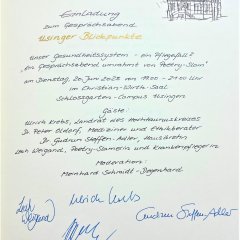 Einladung
zum Gesprächsabend
Usinger Blickpunkte
Unser Gesundheitssystem - ein Pflegefall?
Ein Gesprächsabend umrahmt von Poetry-Slam
am Dienstag, 20. Juni 2023 um 19:00 - 21:00 Uhr
im Christian-Wirth-Saal
Schlossgarten-Campus Usingen
Gäste:
Ulrich Krebs, Landrat des Hochtaunuskreises
Dr. Peter Oldorf, Mediziner und Ethikberater
Dr. Gudrun Steffen-Adler, Hausärztin
Leah Weigand, Poetry-Slamerin und Krankenpflegerin
Moderation:
Meinhard Schmidt-Degenhard
Leah Weigand
Ulrich Krebs
Gudrun Steffen-Adler